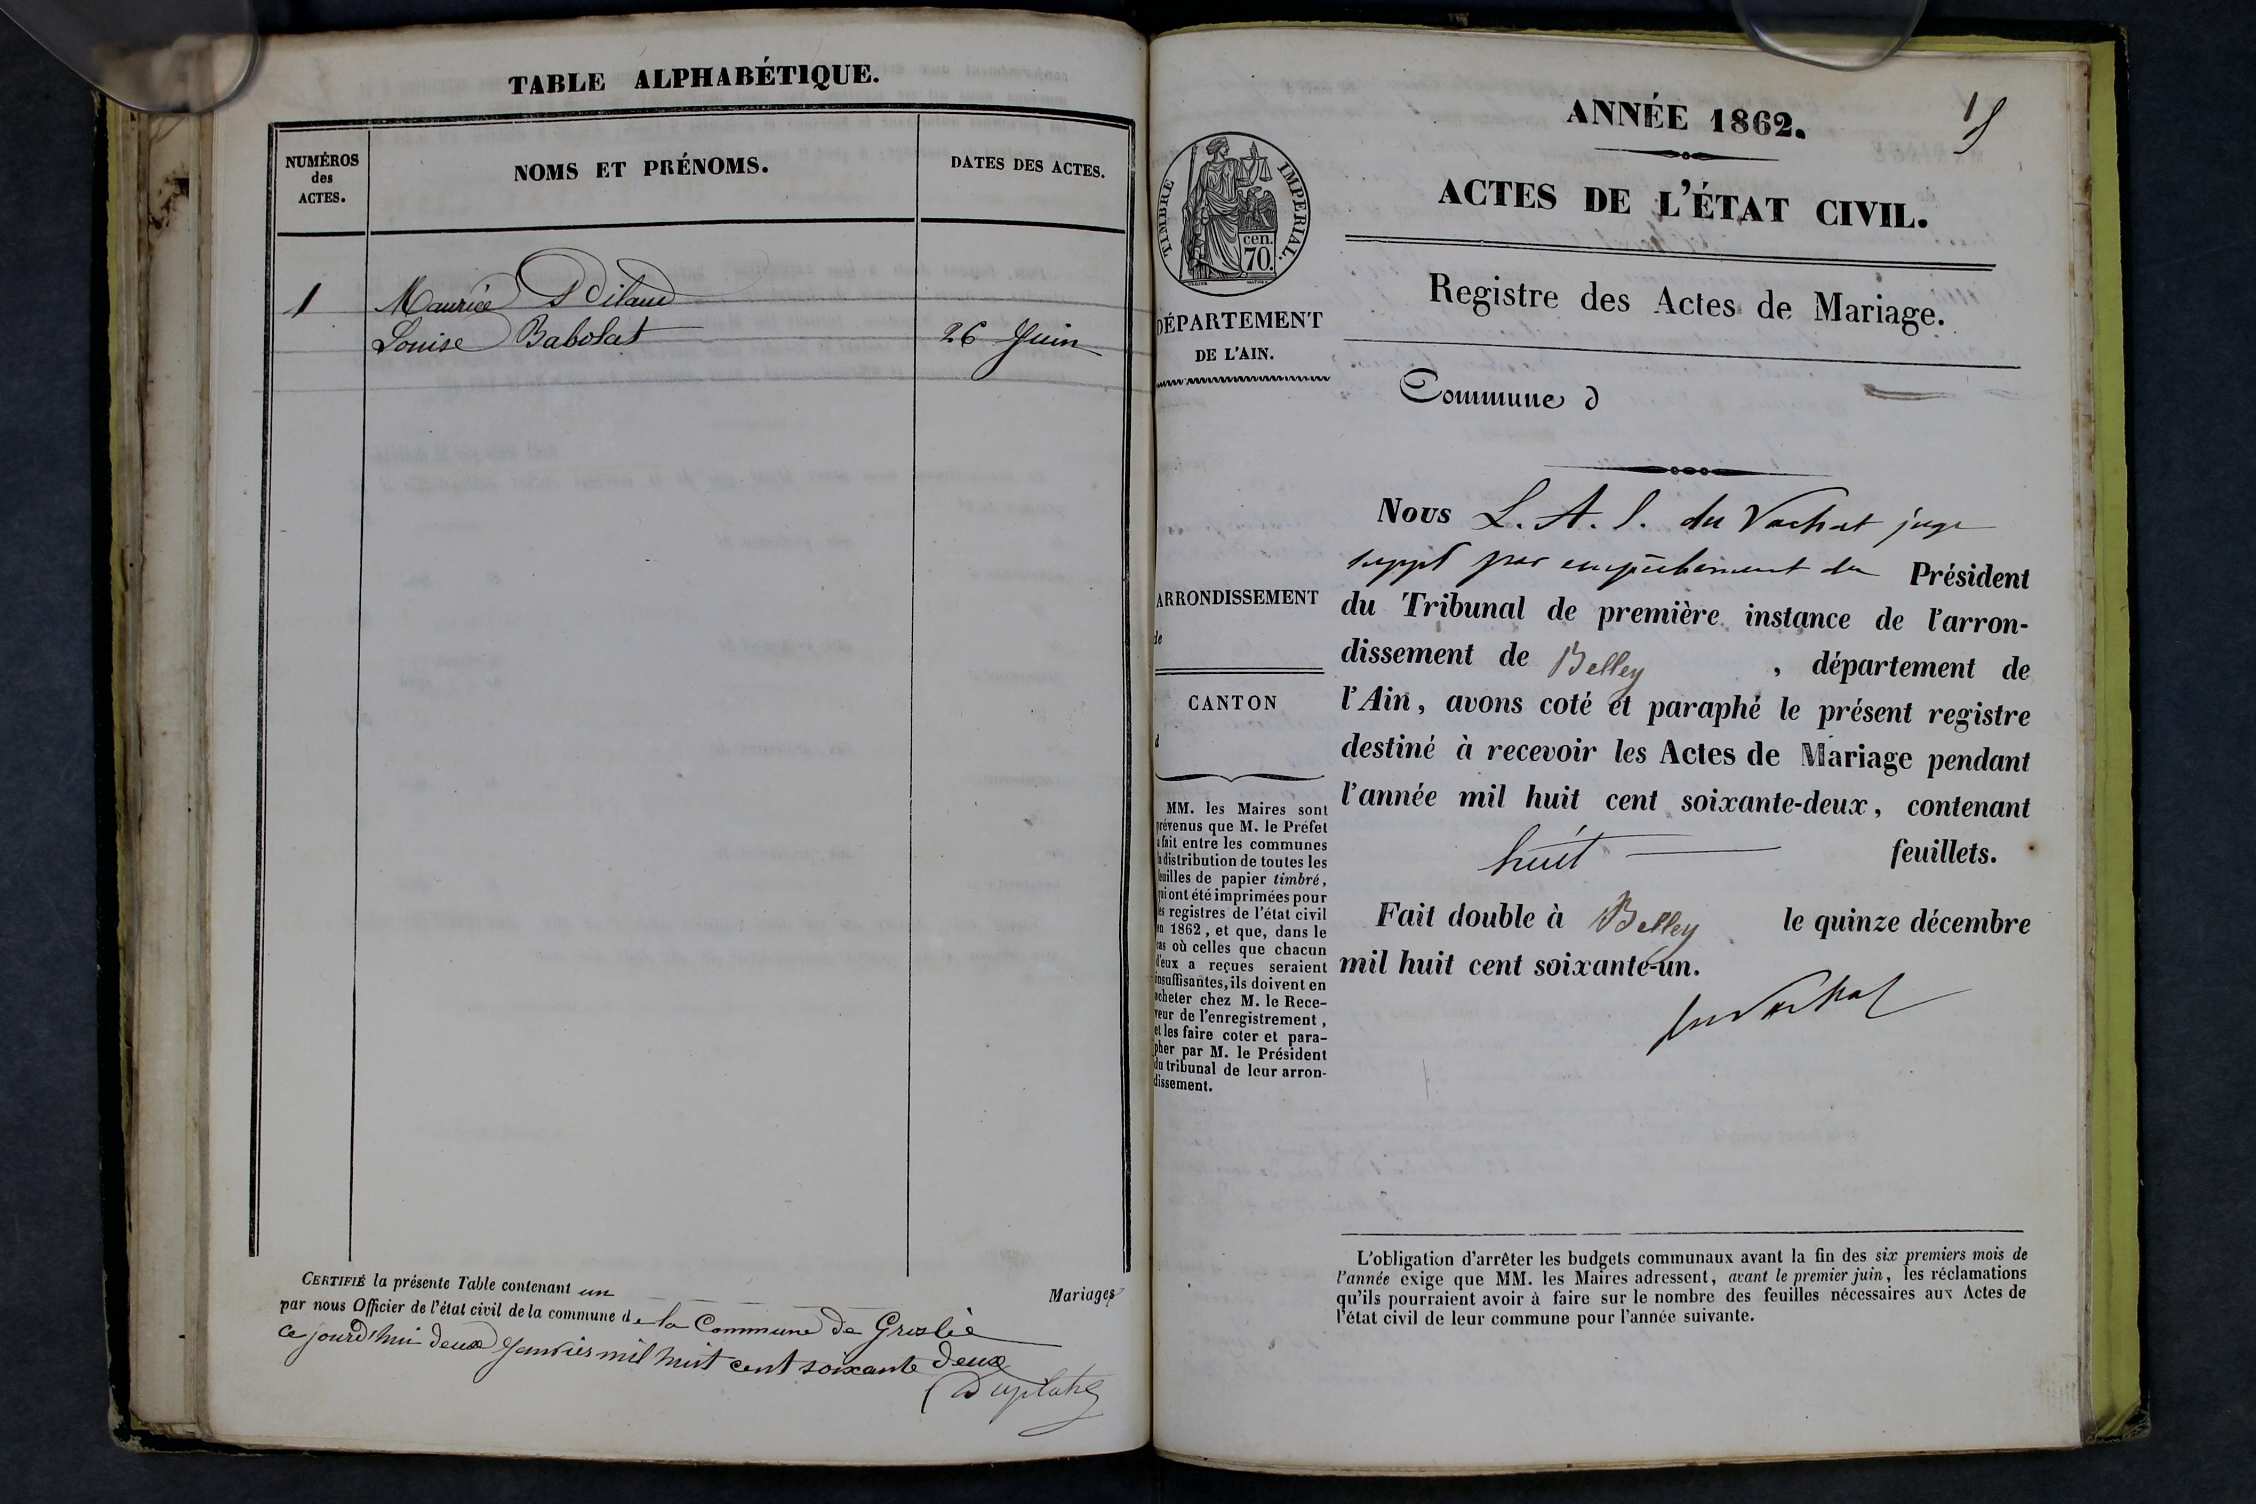 TABLE ALPHABÉTIQUE.
NUMÉROS
des
ACTES.
NOMS ET PRÉNOMS.
DATES DES ACTES.
1
Maurice
Louise Babolat
26 Juin
CERTIFIÉ la présente Table contenant un Mariages
par nous Officier de l'état civil de la commune de la Commune de
ce jourd'hui deux Janvier mil huit cent soixante deux
ANNÉE 1862.
ACTES DE L'ÉTAT CIVIL.
Registre des Actes de Mariage.
Commune d
TIMBRE IMPERIAL.
cen.
70.
DÉPARTEMENT
DE L'AIN.
ARRONDISSEMENT
de
CANTON
d
MM. les Maires sont
prévenus que M. le Préfet
a fait entre les communes
la distribution de toutes les
feuilles de papier timbré,
qui ont été imprimées pour
les registres de l'état civil
en 1862, et que, dans le
cas où celles que chacun
d'eux a reçues seraient
insuffisantes, ils doivent en
acheter chez M. le Rece-
veur de l'enregistrement,
et les faire coter et para-
pher par M. le Président
du tribunal de leur arron-
dissement.
Nous L. A. du Vachat juge
suppt par empêchement du Président
du Tribunal de première instance de l'arron-
dissement de Belley, département de
l'Ain, avons coté et paraphé le présent registre
destiné à recevoir les Actes de Mariage pendant
l'année mil huit cent soixante-deux, contenant
huit feuillets.
Fait double à Belley le quinze décembre
mil huit cent soixante-un.
du Vachat
L'obligation d'arrêter les budgets communaux avant la fin des six premiers mois de
l'année exige que MM. les Maires adressent, avant le premier juin, les réclamations
qu'ils pourraient avoir à faire sur le nombre des feuilles nécessaires aux Actes de
l'état civil de leur commune pour l'année suivante.